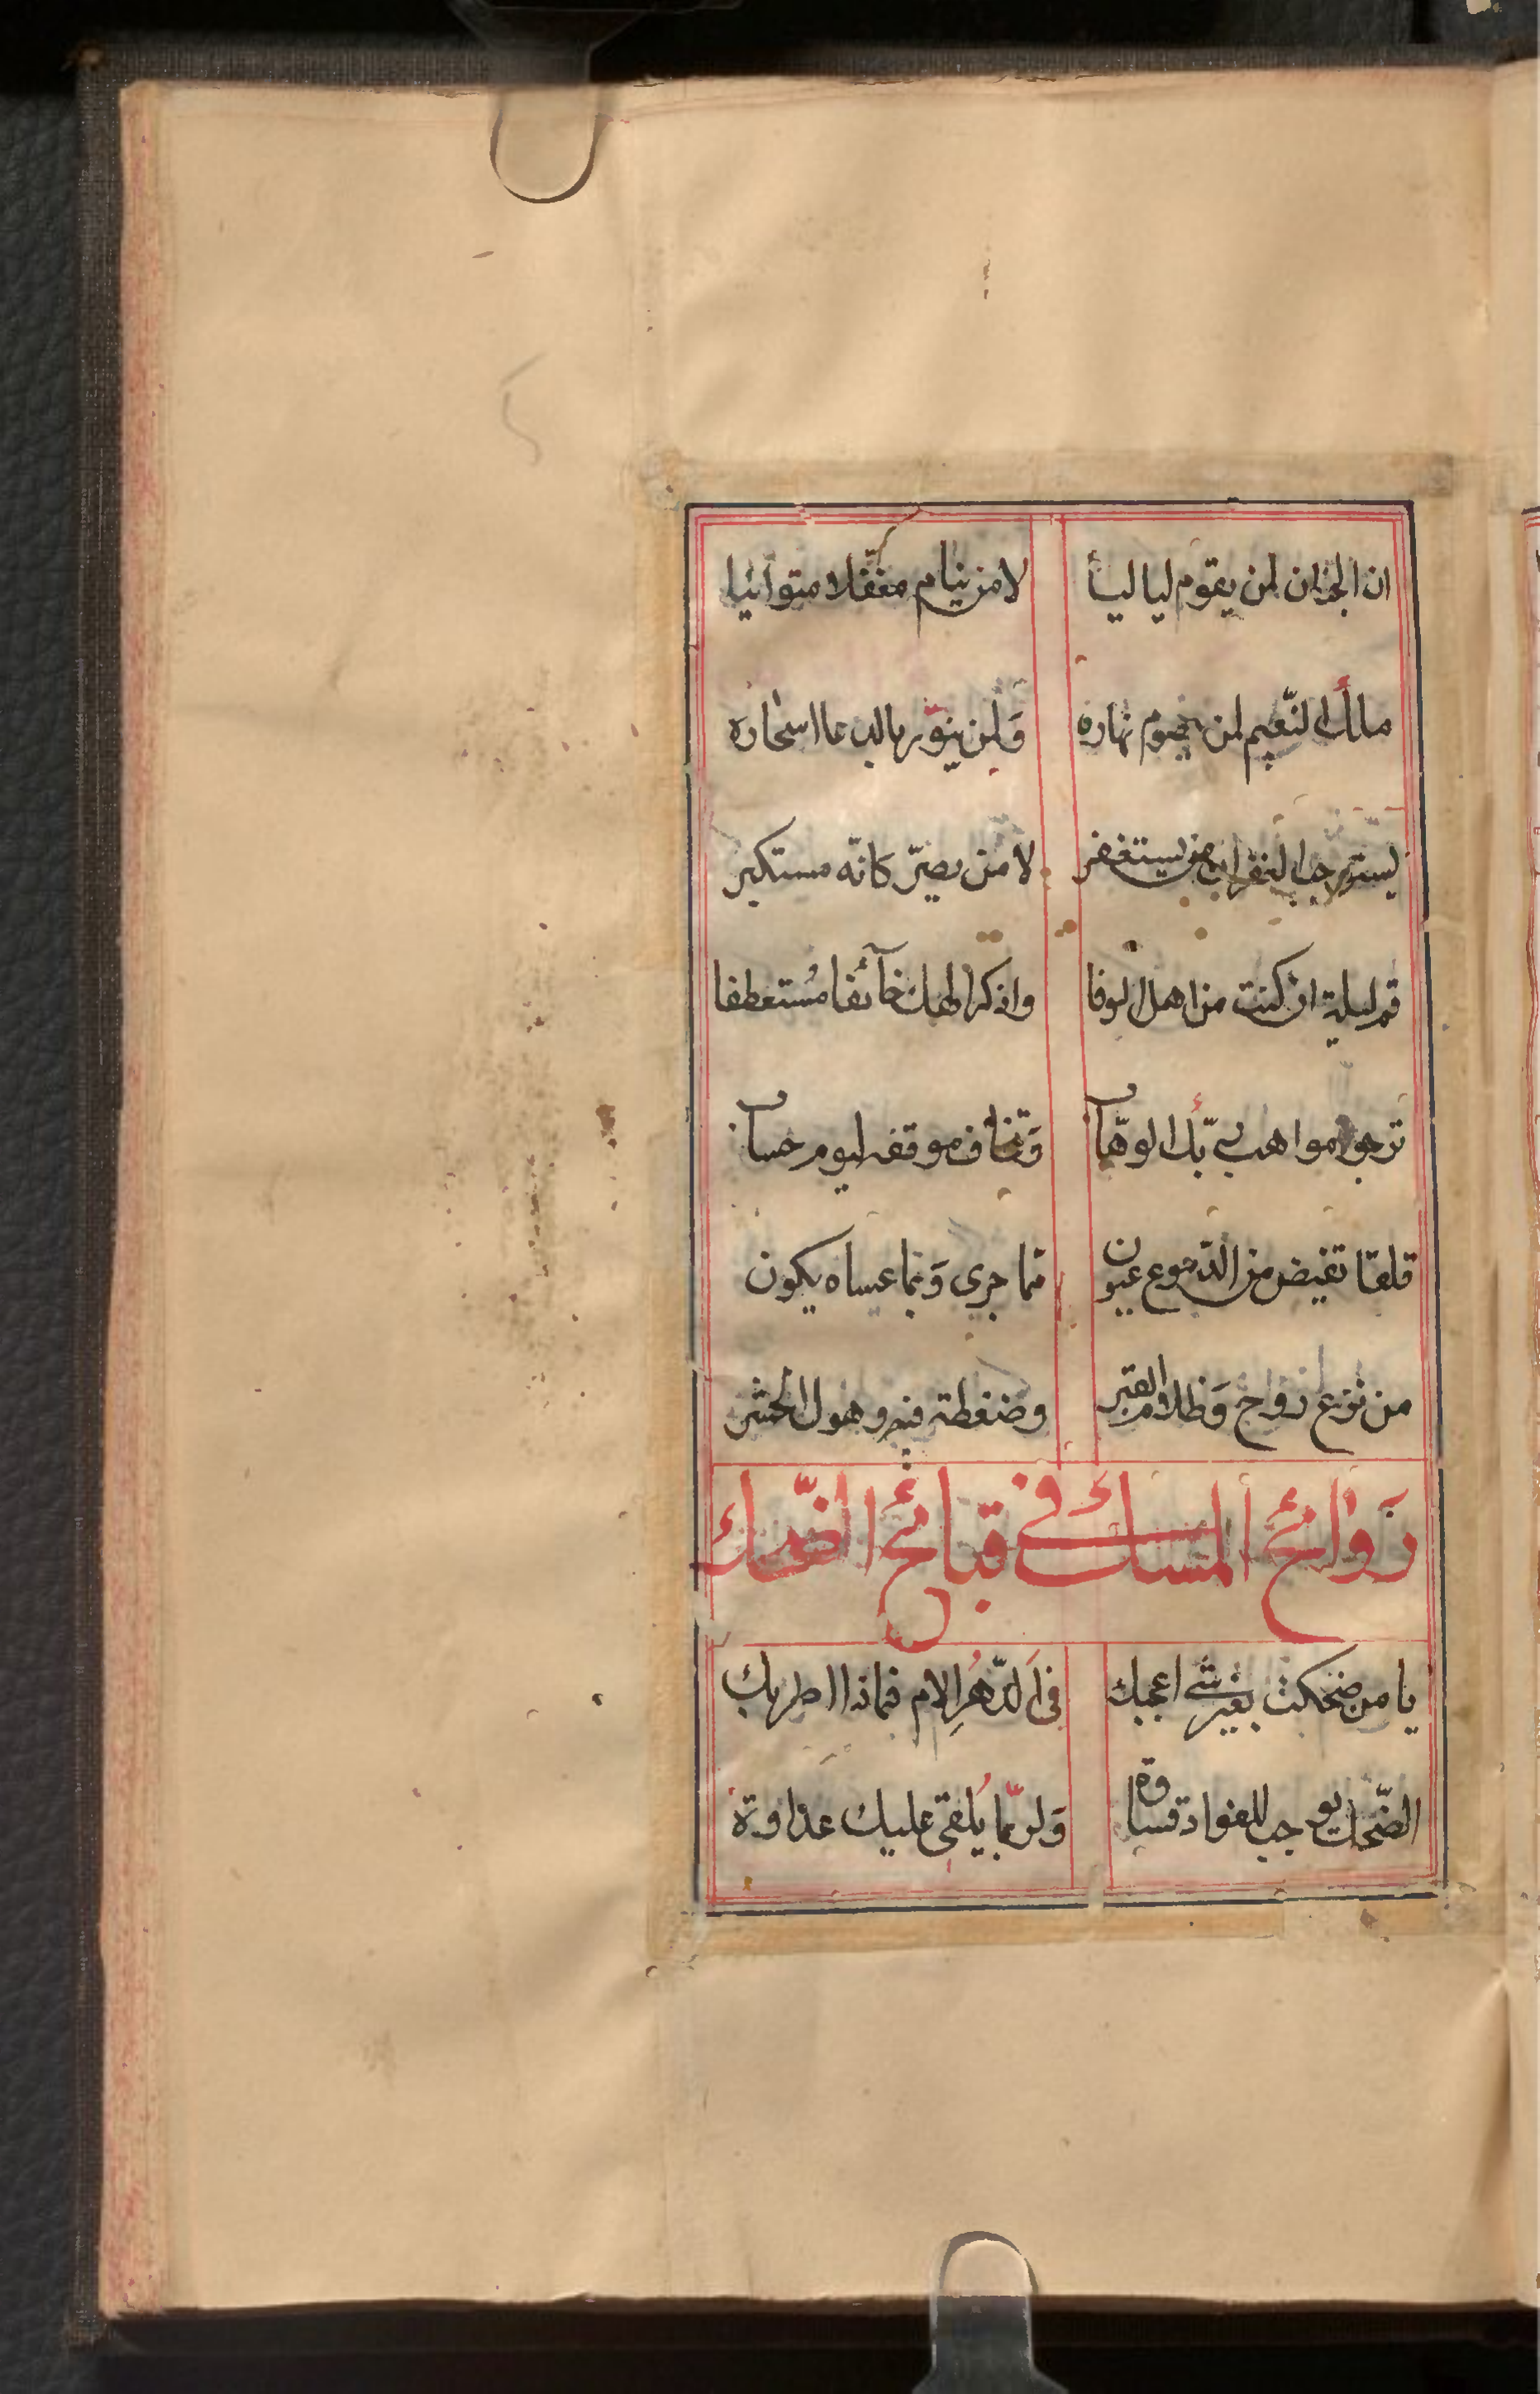 ان الجنان لمن يقوم لياليا لا من ينام مغفلا متوانيا
ملك النّعيم لمن يصوم نهاره وَلمن ينوّر بالدعا اسحاره
يستوجب الغفران من يستغفر لا من يصرّ كانّه مستكبر
قم ليلة ان كنت من اهل الوفا واذكر الهك خآئفا مُستعطفا
ترجو مواهب ربّك الوهّاب وَتخاف موقفه ليوم حساب
قلقا تفيض من الدّموع عيون مما جرى وَبما عساه يكون
من نزع رواح وَظلام القبر وضغطة فيه وهول الحشر
رَوائح المسك في قبائح الضّحك
يا من ضحكت بغير شئ اعجبك في الدّهرِ الام فماذا اطربك
الضّحك يوجب للفواد قساوة وَلربّما يُلقى عليك عذاوة